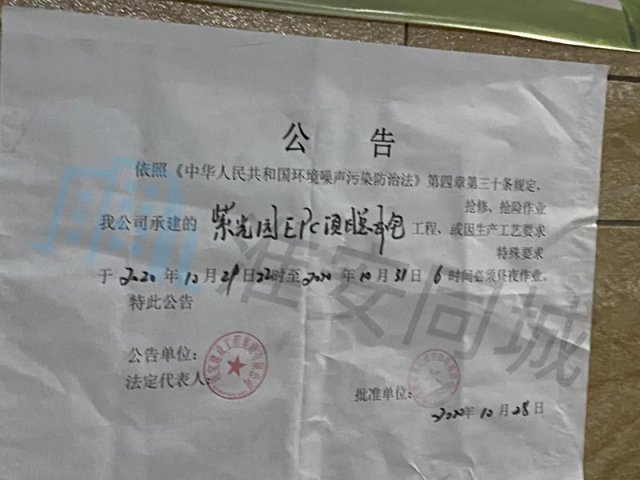 公告
依照《中华人民共和国环境噪声污染防治法》第四章第三十条规定,
抢修、抢险作业
我公司承建的紫光园EPC项目 工程、或因生产工艺要求
特殊要求
于2020年10月29日22时至2020年10月31日6时间必须昼夜作业。
特此公告
公告单位:
法定代表人:
批准单位:
2020年10月28日
淮安同城